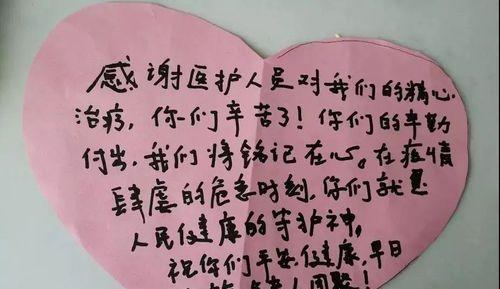 感谢医护人员对我们的精心
治疗，你们辛苦了！你们的辛勤
付出，我们将铭记在心。在疫情
肆虐的危急时刻，你们就是
人民健康的守护神，
祝你们平安健康，早日
家人团聚！